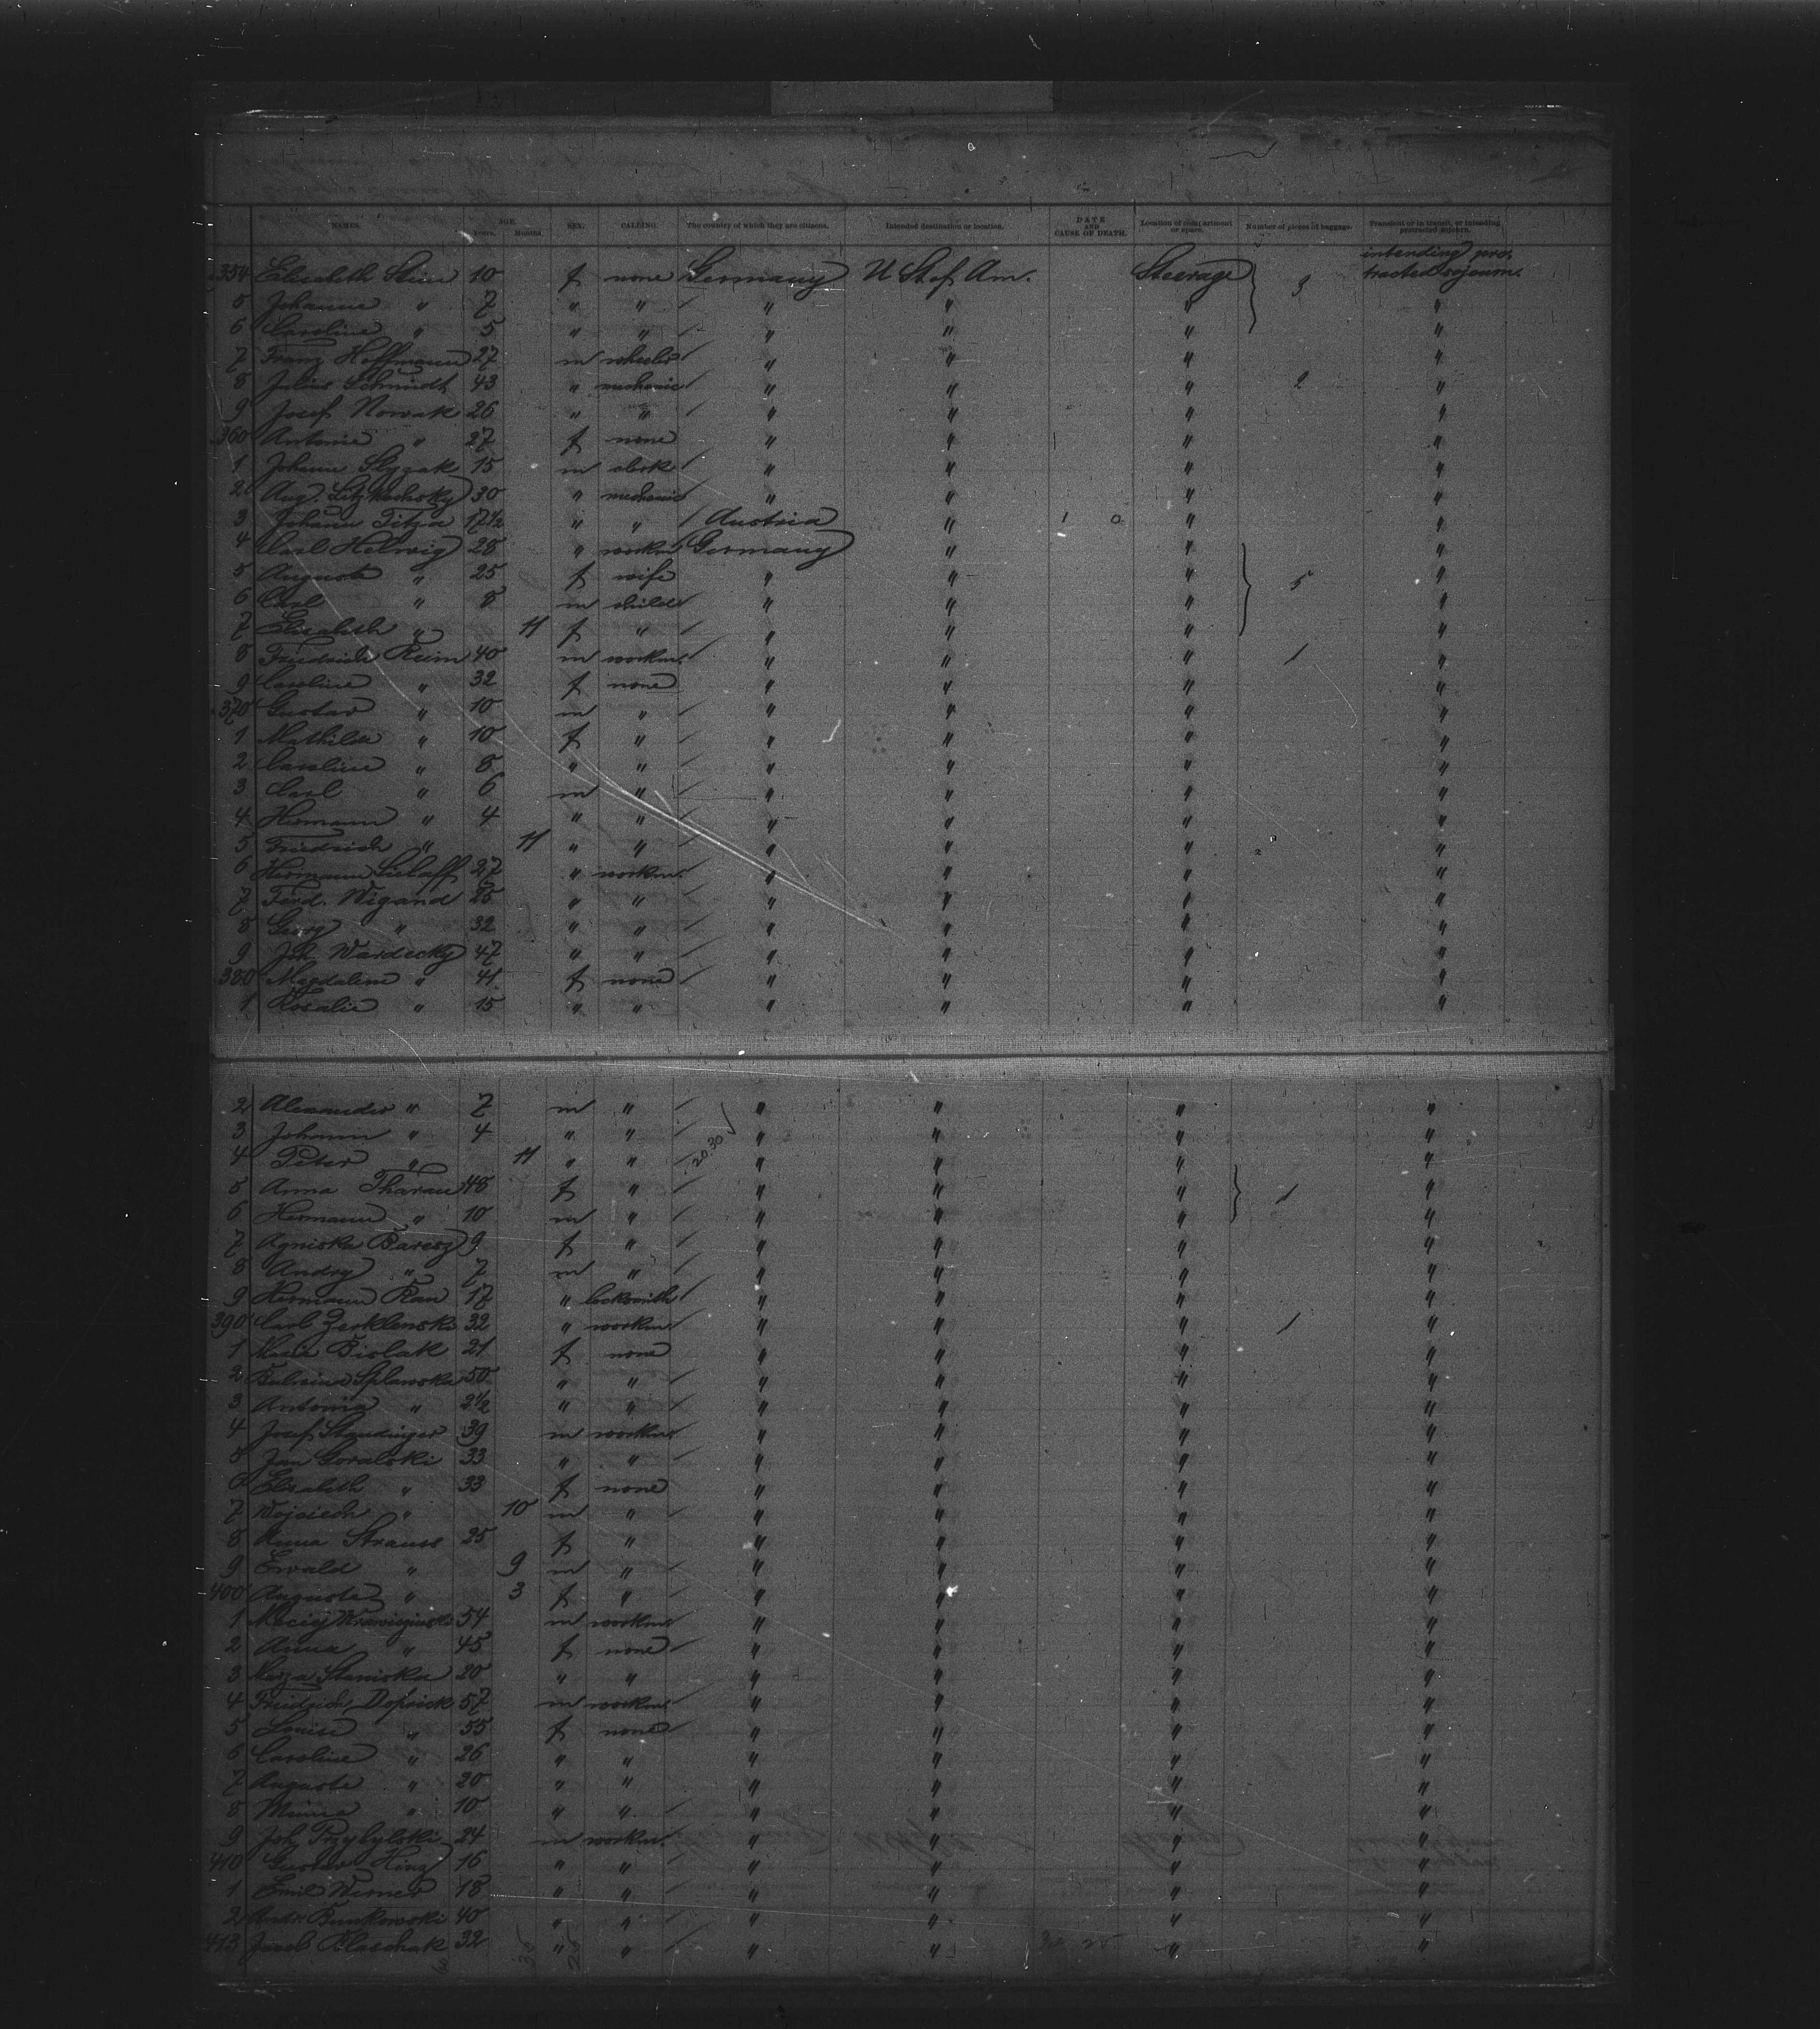 NAMES. AGE. Years. Months. SEX. CALLING. The country of which they are citizens. Intended destination or location. DATE AND CAUSE OF DEATH. Location of compartment or space. Number of pieces of baggage. Transient or in transit, or intending protracted sojourn.
354 Elisabeth Stein 10 f none Germany U St of Am. Steerage 3 intending pro-tracted sojourn.
5 Johanne " 7 " " " " " "
6 Caroline " 5 " " " " " "
7 Franz Hoffmann 27 m " " " "
8 Julius Schmidt 43 " mechanic " " " 2 "
9 Josef Nowak 26 " " " " " "
360 Antonie " 27 f none " " " "
1 Johann Slyzak 15 m clerk " " " "
2 Aug. 30 " mechanic " " " "
3 Johann Titza 17 1/2 " " Austria " " "
4 Carl Helwig 28 " workm Germany " " "
5 Auguste " 25 f wife " " " 5 "
6 Carl " 8 m child " " " "
7 Elisabeth " 11 f " " " " "
8 Friedrich Reim 40 m workm. " " " 1 "
9 Caroline " 32 f none " " " "
370 Gustav " 10 m " " " " "
1 Mathilde " 10 f " " " " "
2 Caroline " 8 " " " " " "
3 Carl " 6 m " " " " "
4 Hermann " 4 " " " " " "
5 Friedrich " 11 " " " " " "
6 Hermann Sielaff 27 " workm. " " " "
7 Ferd. Wigand 25 " " " " " "
8 Georg " 32 " " " " " "
9 Joh. Wardecky 47 " " " " " "
380 Magdalene " 41 f none " " " "
1 Rosalie " 15 " " " " " "
2 Alexander " 7 m " " " " "
3 Johann " 4 " " " " " "
4 Peter " 11 " " 20.30 " " " "
5 Anna Tharau 48 f " " " " 1 "
6 Hermann " 10 m " " " " "
7 Agniska Baresz 9 f " " " " "
8 Andry " 7 m " " " " "
9 Hermann Rau 17 " locksmith " " " "
390 Carl Zerklenski 32 " workm " " " 1 "
1 Marie Bislak 21 f none " " " "
2 Splawska 50 " " " " " "
3 Antonia " 2 1/2 " " " " " "
4 Josef Staudinger 39 m workm. " " " "
5 Jan Goralski 33 " " " " " "
6 Elisabeth " 33 f none " " " "
7 Wojciech " 10 m " " " " "
8 Anna Strauss 25 f " " " " "
9 Ewald " 9 m " " " " "
400 Auguste " 3 f " " " " "
1 Maciej 54 m workm. " " " "
2 Anna " 45 f none " " " "
3 Staniska 20 " " " " " "
4 Friedrich 57 m workm. " " " "
5 Louise " 55 f none " " " "
6 Caroline " 26 " " " " " "
7 Auguste " 20 " " " " " "
8 Minna " 10 " " " " " "
9 Joh. Przybylski 24 m workm. " " " "
410 Gustav Hinz 16 " " " " " "
1 Emil Werner 18 " " " " " "
2 Andr. Bunkowski 40 " " " " " "
413 Jacob Blaschak 32 " " " " " "